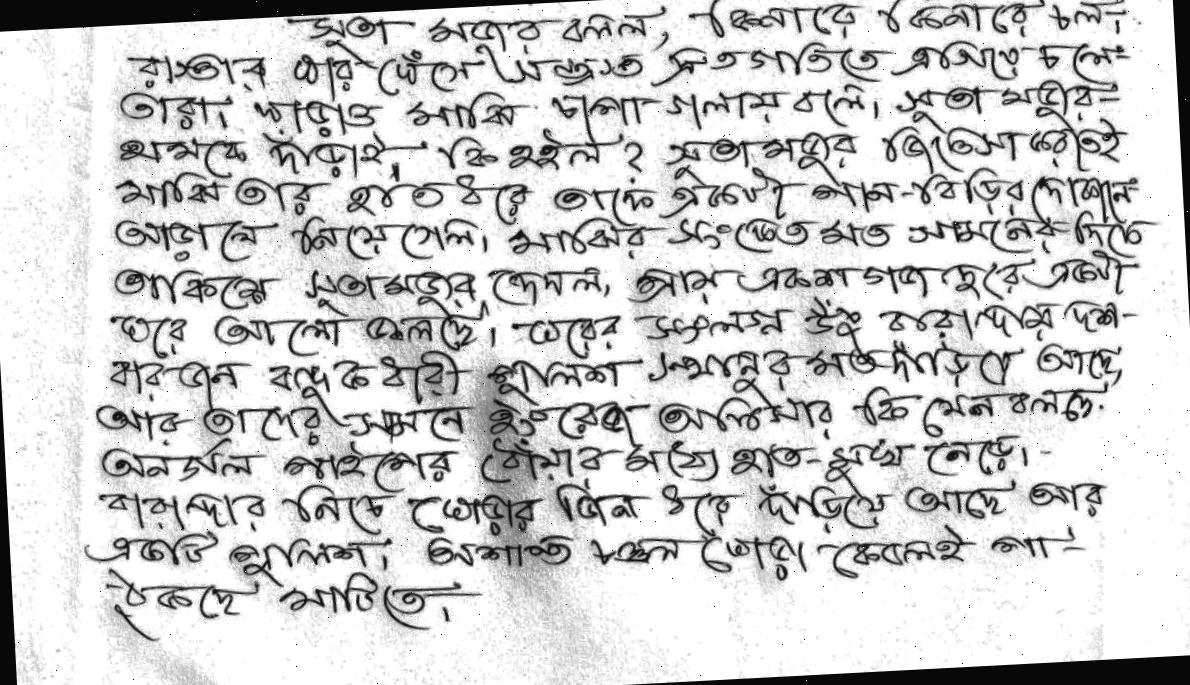 সুতা মজুর বলল, কিনারে কিনারে চল।
রাস্তার ধার ঘেঁসে সন্ত্রস্ত দ্রুতগতিতে এগিয়ে চলে
তারা। দাঁড়াও মাঝি চাপা গলায় বলে। সুতা মজুর
থমকে দাঁড়াই, কি হইল? সুতামজুর জিজ্ঞেসা করতেই
মাঝি তার হাত ধরে তাকে একটা পান-বিড়ির দোকান
আড়ালে নিয়ে গেল। মাঝির সংকেত মত সামনের দিকে
তাকিয়ে সুতামজুর দেখল, প্রায় একশ গজ দুরে একটা
ঘরে আলো জ্বলছে। ঘরের সংলগ্ন উঁচু বারান্দায় দশ-
বারজন বন্দুকধারী পুলিশ স্থানুর মত দাঁড়িয়ে আছে,
আর তাদের সামনে ইংরেজ অফিসার কি যেন বলছে
অনর্গল পাইপের ধোঁয়ার মধ্যে হাত-মুখ নেড়ে।
বারান্দার নিচে ঘোড়ার জিন ধরে দাঁড়িয়ে আছে আর
একটি পুলিশ। অশান্ত চঞ্চল ঘোড়া কেবলই পা
ঠুকছে মাটিতে।